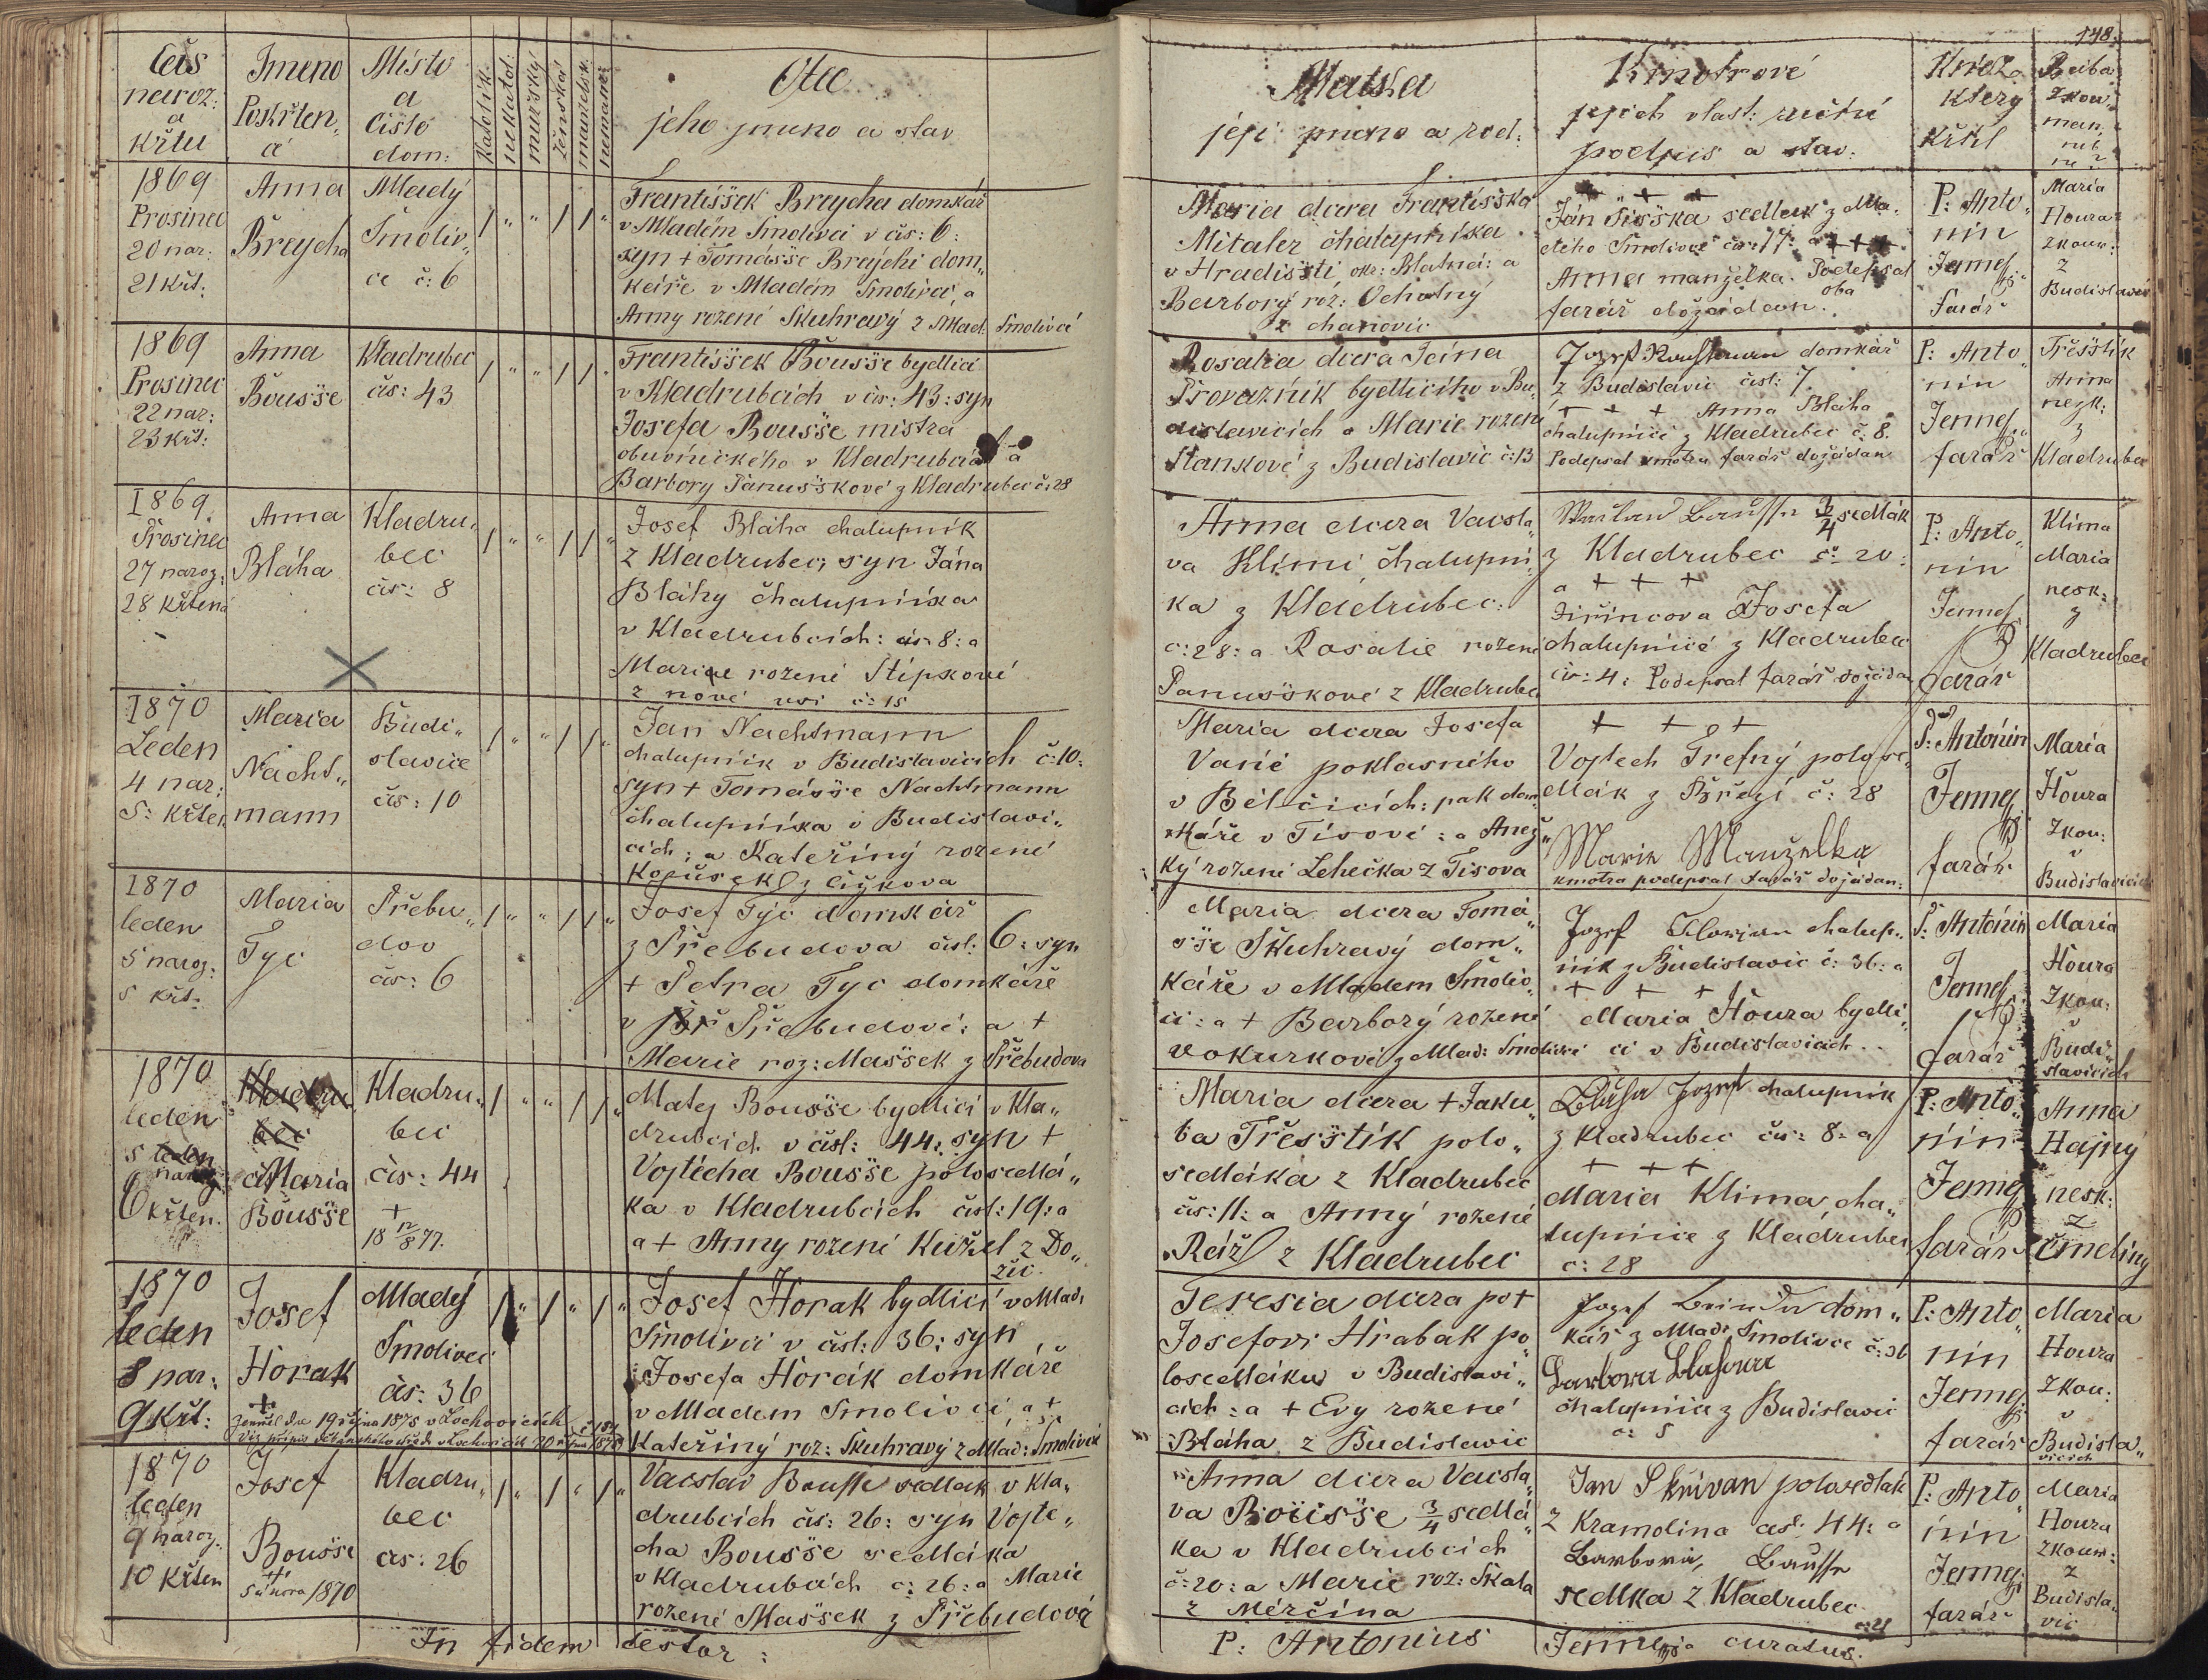 148.
Čas
naroz:
a
křtu
Jmeno
Pokřten„
á
Místo
a
Čislo
dom:
Katolík.
nekatol.
mužský
ženská
manželsk.
nemanž.
Otec
jeho jmeno a stav
Matka
její jmeno a rod:
Kmotrové
jejich vlast: ruční
podpis a stav:
Kněz
který
křtil
Baba
zkou„
man.
neb
ne?
1869
Prosinec
20 nar:
21 křt:
Anna
Breycha
Mladý
Smoliv„
ec č: 6
Františsek Breycha domkář
v Mladém Smolivci v čis: 6:
syn + Tomásse Breychi dom„
káře v Mladém Smolivci, a
Anny rozené Skuhravý z Mlad: Smolivci
Maria dcera Františska
Mitaler chalupníka
v Hradišti okr: Blatná: a
Barborý roz:
z chanovic
+ + +
Ján Sisska sedlak z Mla„
dého Smolivce čis: 17: a + + +
Anna manželka. Podepsal
oba
farář dožádan.
P: Anto„
nin
Jennej
farář
Maria
Houra
zkous:
z
Budislavic
1869
Prosinec
22 nar:
23 křt:
Anna
Boussе
Kladrubec
čis: 43
Františsek Bousse bydlicí
v Kladrubcich v čis: 43: syn
Josefa Bousse mistra
obuvnického v Kladrubcích a
Barbory Panusskové z Kladrubec č: 28
Rosalia dcera Jcina
Provazník bydlicího v Bu„
dislavicích a Marie rozené
Stankové z Budislavic č: 13
Jozef domkář
z Budislavic čisl: 7.
+ + + Anna Bláha
chalupnice z Kladrubec č: 8.
Podepsal kmotru farář dožádan
P: Anto„
nin
Jennej
farář
Třesstik
Anna
nezk:
z
Kladrubec
1869
Prosinec
27 naroz:
28 křtená
Anna
Bláha
Kladru„
bec
čis: 8
Josef Bláha chalupník
z Kladrubec; syn Jána
Bláhy chalupníka
v Kladrubcích: čis: 8: a
Marie rozené Stípskové
z nové vsi č: 15
Anna dcera Vácsla„
va Klimi, chalupní„
ka z Kladrubec:
č: 28: a Rosalie rozené
Panusskové z Kladrubec
Watzlaw Bausse 3/4 sedlák
z Kladrubec č: 20:
a + + +
Jiřincova Josefa
chalupnice z Kladrubec
čis: 4: Podepsal farář dožádan
P: Anto„
nin
Jennej
farář
Klima
Maria
nesk:
z
Kladrubec
1870
Leden
4 nar:
5: křten
Maria
Nacht„
mann
Budi„
slavice
čis: 10
Jan Nachtmann
chalupník v Budislavicích č: 10:
syn + Tomásse Nachtmann
chalupníka v Budislavi„
cích; a Kateřiný rozené
z Čižkova
Maria dcera Josefa
Vaněč poklasného
v Bělčicích: pak dom„
káře v Tisové: a Anež„
ký rozené Lehečka z Tisova
+ + +
Vojtech Trefný polose„
dlák z Březí č: 28
Marie Manželka
kmotra podepsal farář dožádan:
P: Antonín
Jennej
farář
Maria
Houra
Zkou:
v
Budislavicích
1870
leden
5 naroz:
5 křt:
Maria
Tyc
Přebu„
dov
čis: 6
Josef Týc domkář
z Přebudova čisl: 6: syn
+ Petra Tyc domkáře
v Přebudově: a +
Marie roz: Massek z Přebudova
Maria dcera Tomá„
sse Skuhravý dom„
káře v Mladem Smoliv„
ci: a + Barborý rozené
vokurkové z Mlad: Smolivci
Jozef Florian chalup„
ník z Budislavic č: 36: a
+ + +
Maria Houra bydli„
ci v Budislavicích..
P: Antonín
Jennej
farář
Maria
Houra
Zkou:
v
Budi„
slavicích
1870
leden
5 leden
naroz
6 křten.
Kladru
bec
Maria
Bousse
Kladru„
bec
čis: 44
+
18 12/8 77.
Matej Bousse bydlicí v Kla„
drubcích v čisl: 44: syn +
Vojtěcha Bousse polosedlá„
ka v Kladrubcích čisl: 19: a
a + Anny rozené Kužel z Do„
žic.
Maria dcera + Jaku„
ba Třesstík polo„
sedláka z Kladrubec
čis: 11: a Anný rozené
Ráž z Kladrubec
Blaha Jozef chalupnik
z Kladrubec čis: 8: a
+ + +
Maria Klima, cha„
lupnice z Kladrubec
č: 28
P: Anto„
nin
Jennej
farář
Anna
Hajný
nesk:
z
Čmeliny
1870
leden
8 nar:
9 křt:
Josef
Horak
+
zemřel dne 19 října 1875 v Lochovicích
Mladý
Smolivec
čis: 36
Josef Horak bydlicí v Mlad:
Smolivci v čisl: 36: syn
Josefa Horák domkáře
v Mladem Smolivci, a +
Kateřiný roz: Skuhravý z Mlad: Smolivci
Teresia dcera po +
Josefovi Hrabak po„
losedláku v Budislavi„
cich: a + Evy rozené
Bláha z Budislavic
Jozef dom„
kář z Mlad: Smolivce č: 36
Barbora Blahova
chalupnice z Budislavic
č: 5
P: Anto„
nin
Jennej
farář
Maria
Houra
Zkou:
v
Budisla„
vicích
1870
leden
9 naroz.
10 křten
Josef
Bousse
+
5 února 1870
Kladru„
bec
čis: 26
Vácslav Bousse sedlak v Kla„
drubcích čis: 26: syn Vojtě„
cha Bousse sedláka
v Kladrubcích č: 26: a Marie
rozené Massek z Přebudova
Anna dcera Vácsla„
va Bousse 3/4 sedlá„
ka v Kladrubcích
č: 20: a Marie roz: Skala
z Měrčína
Jan Skřivan polosedlák
z Kramolina čisl: 44: a
Barbora, Bausse
sedlka z Kladrubec
č: 21
P: Anto„
nin
Jennej
farář
Maria
Houra
zkous:
z
Budisla„
vic
In fidem testor:
P: Antonius Jennej curatus.